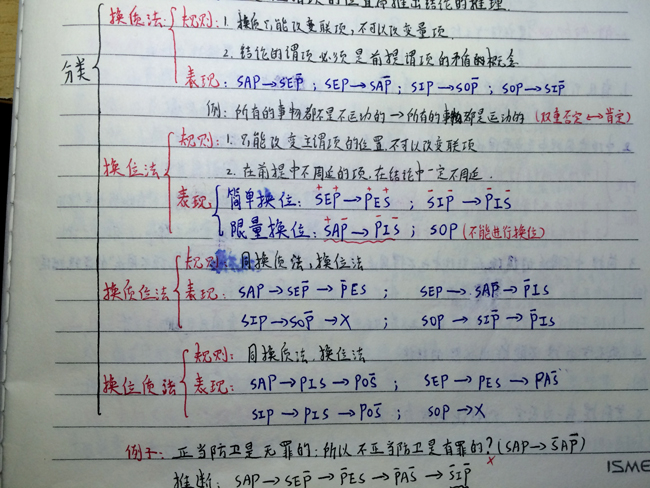 位置原推出结论的推理.
分类
换质法 规则: 1. 换质只能改变联项,不可以改变量项.
2. 结论的谓项必须是前提谓项的矛盾的概念
表现: SAP→SEP̄ ; SEP→SAP̄ ; SIP→SOP̄ ; SOP→SIP̄
例: 所有的事物都不是不运动的→所有的事物都是运动的 (双重否定↔肯定)
换位法 规则: 1. 只能改变主谓项的位置,不可以改变联项
2. 在前提中不周延的项,在结论中一定不周延.
表现 简单换位: S⁺EP⁺→P⁺ES⁺ ; S⁻IP⁻→P⁻IS⁻
限量换位: S⁺AP⁻→P⁻IS⁻ ; SOP (不能进行换位)
换质位法 规则: 同换质法,换位法
表现: SAP→SEP̄→P̄ES ; SEP→SAP̄→P̄IS
SIP→SOP̄→X ; SOP→SIP̄→P̄IS
换位质法 规则: 同换质法.换位法
表现: SAP→PIS→POS̄ ; SEP→PES→PAS̄
SIP→PIS→POS̄ ; SOP→X
例子: 正当防卫是无罪的.所以不正当防卫是有罪的? (SAP→S̄AP̄) x
推断: SAP→SEP̄→P̄ES→P̄AS̄→S̄IP̄
ISME